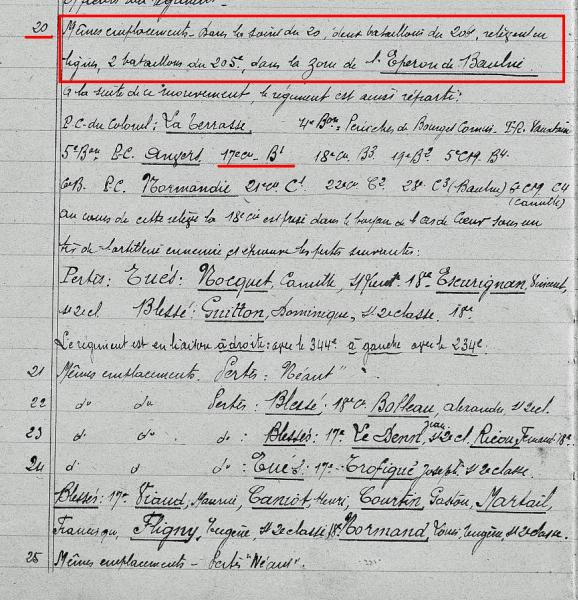 20 Mêmes emplacements - Dans la soirée du 20, deux bataillons du 204e, relèvent en
lignes, 2 bataillons du 205e, dans la zone de l'Eperon de Baulne
A la suite de ce mouvement, le régiment est ainsi réparti:
P.C. du Colonel: La Terrasse 4e Bon: Péniches de Bourg et Comin -
5e Bon P.C. Angers 17e Cie B1 18e Cie B3 19e B2 5e CM B4
6e B. P.C. Normandie 21e Cie C1 22e Cie C2 23e C3 (Baulne) 6e CM C4
au cours de cette relève la 18e Cie est prise dans le boyau de l'as de Cœur sous un
tir de l'artillerie ennemie et éprouve les pertes suivantes:
Pertes: Tués: Nocquet, Camille, 18e Escurignan, Vincent,
st 2e cl Blessé: Guitton, Dominique, st 2e classe 18e
Le régiment est en liaison à droite: avec le 344e à gauche avec le 234e.
21 Mêmes emplacements. Pertes: "Néant"
22 do do Pertes: Blessé: 18e Cie Bolleau, Alexandre st 2e cl.
23 d do do: Blessés: 17e Le Denn, Jean, st 2e cl, Ricou, Fernand 18e
24 d d do: Tué: 17e Trofiqué Joseph st 2e classe.
Blessés: 17e Viaud, Maurice, Camiot, Henri, Courtin, Gaston, Martail,
François, Fligny, Eugène, st 2e classe, 18e Normand, Louis, Eugène st 2e classe.
25 Mêmes emplacements - Pertes "Néant".